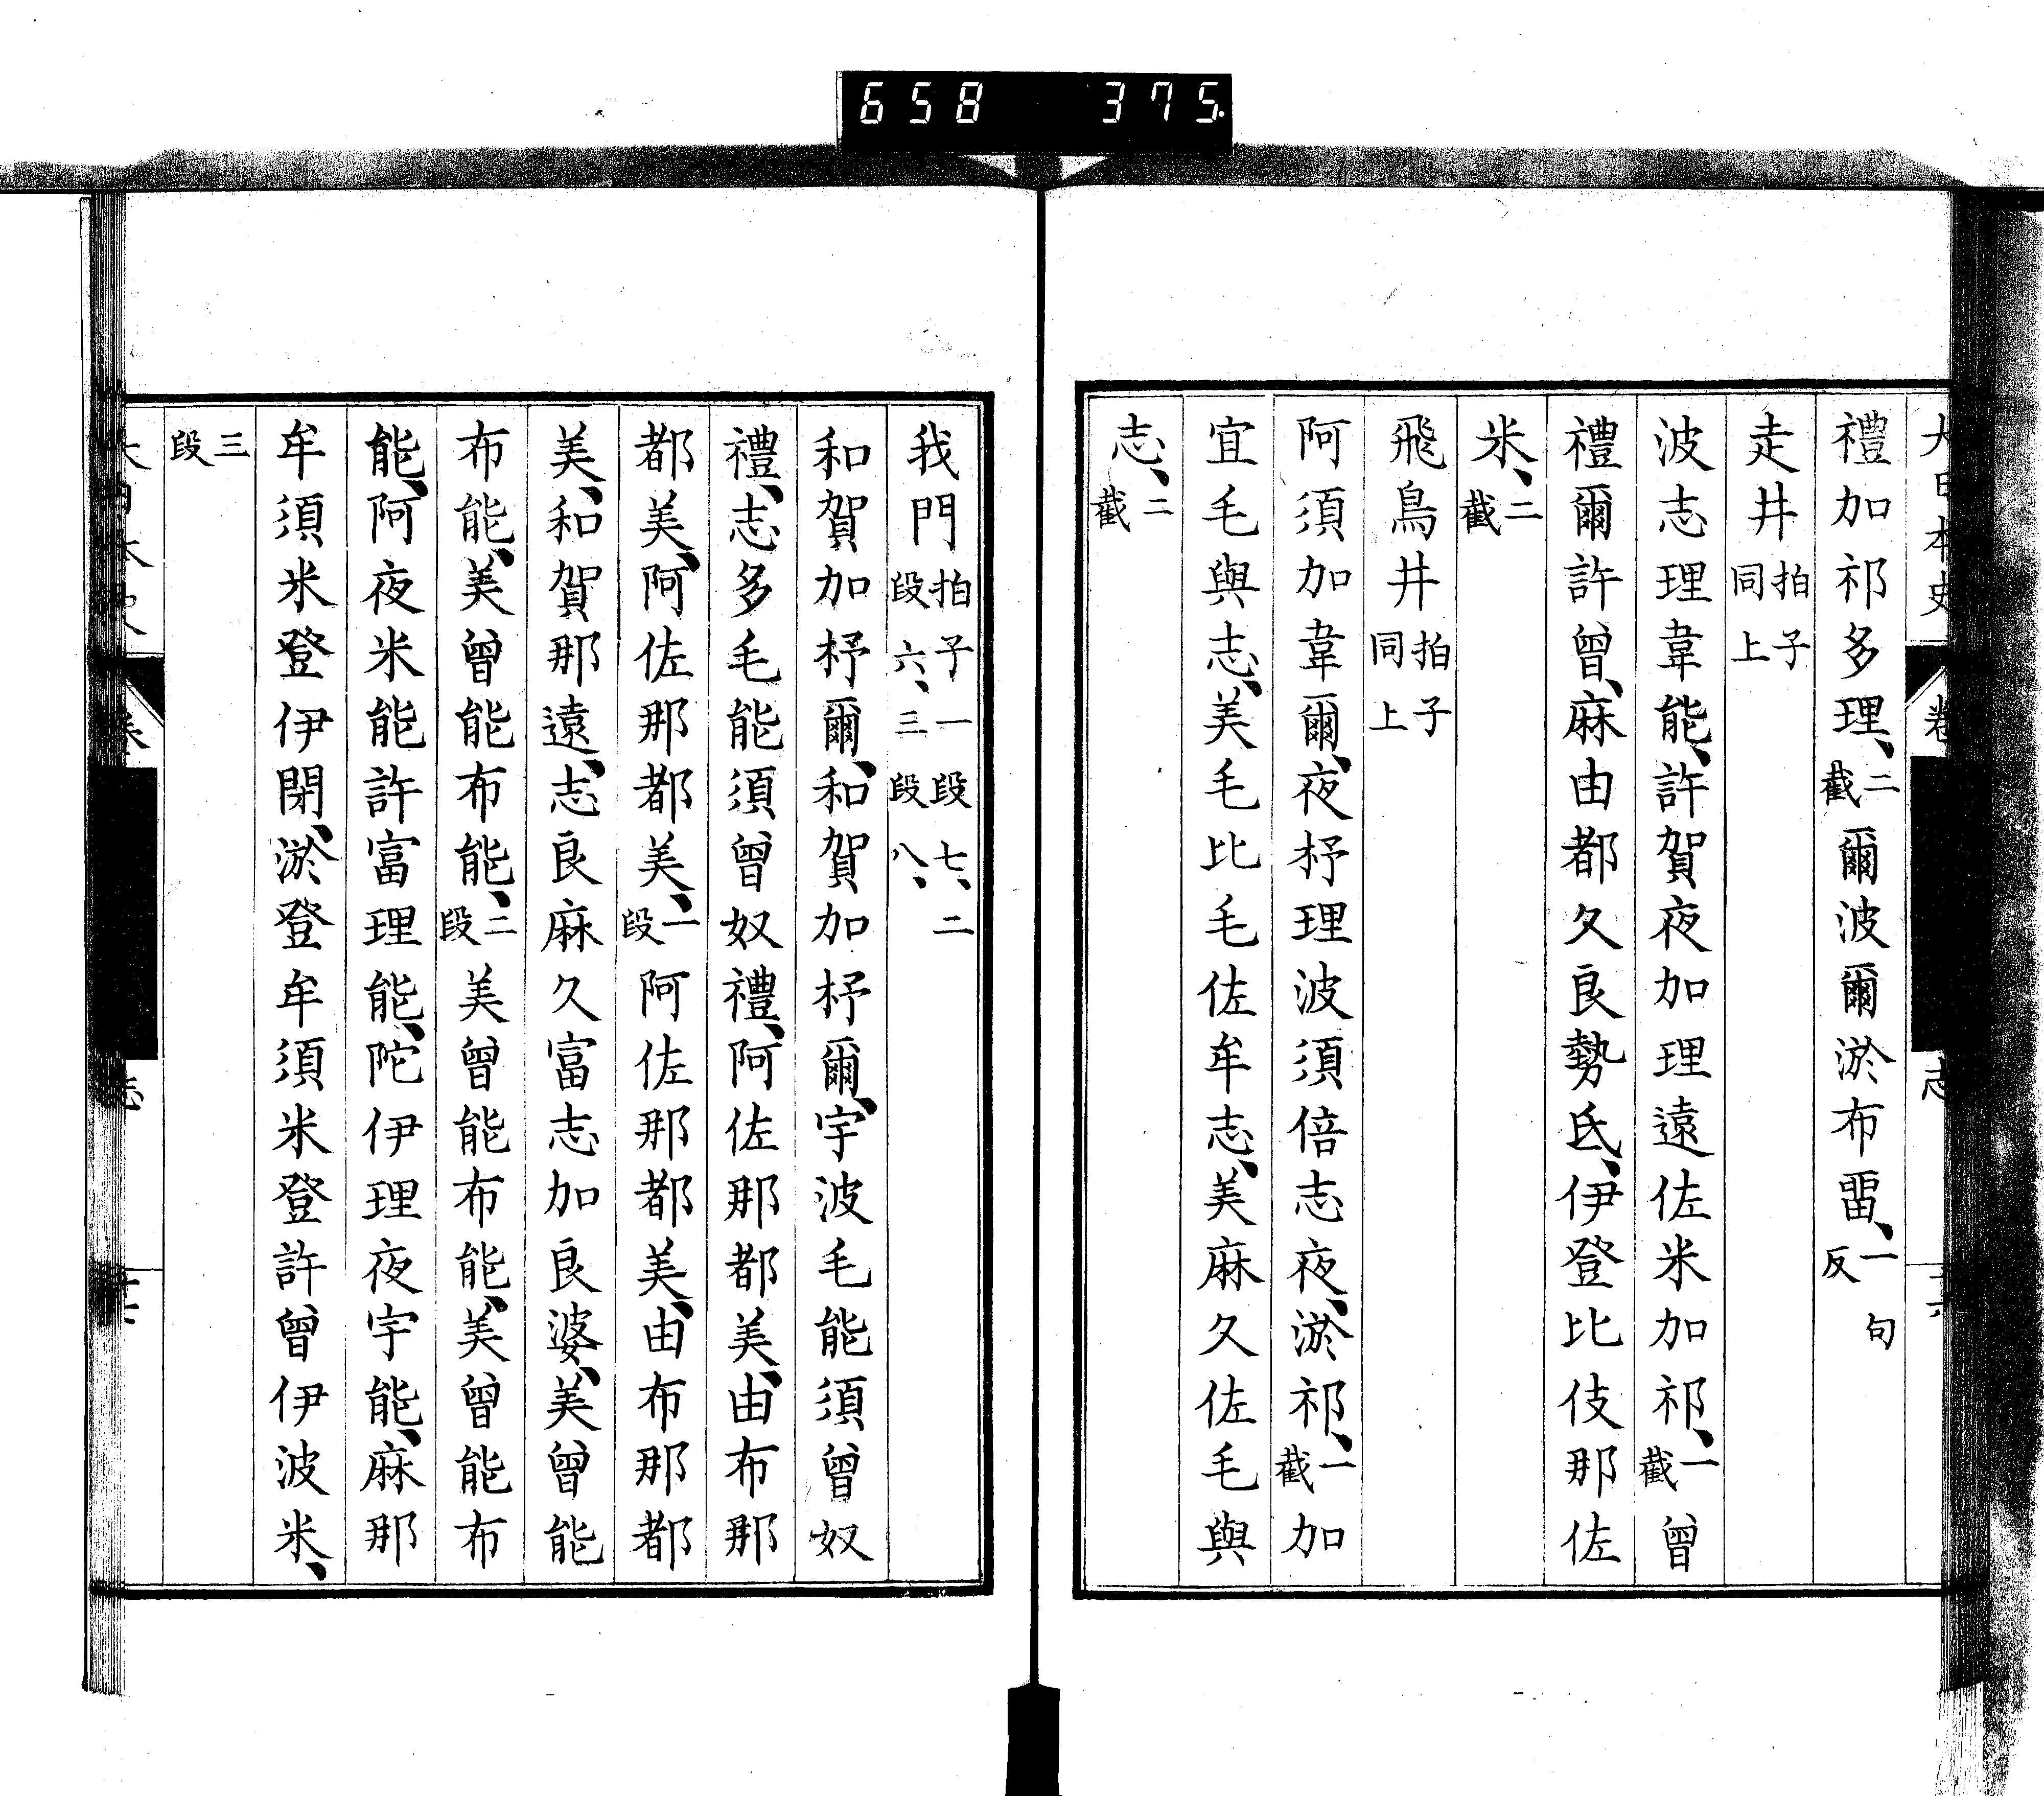 658 375
禮加祁多理、二截爾波爾淤布畱、一反句
走井拍子同上
波志理韋能、許賀夜加理遠佐米加祁、一截曾
禮爾許曾、麻由都久良勢氐、伊登比伎那佐
米、二截
飛鳥井拍子同上
阿須加韋爾、夜杼理波須倍志夜、淤祁、一截加
宜毛與志、美毛比毛佐牟志、美麻久佐毛與
志、二截
我門拍子一段七、二段六、三段八、
和賀加杼爾、和賀加杼爾、宇波毛能須曾奴
禮、志多毛能須曾奴禮、阿佐那都美、由布那
都美、阿佐那都美、一段阿佐那都美、由布那都
美、和賀那遠、志良麻久富志加良婆、美曾能
布能、美曾能布能、二段美曾能布能、美曾能布
能、阿夜米能許富理能、陀伊理夜宇能、麻那
牟須米登伊閉、淤登牟須米登許曾伊波米、
三段